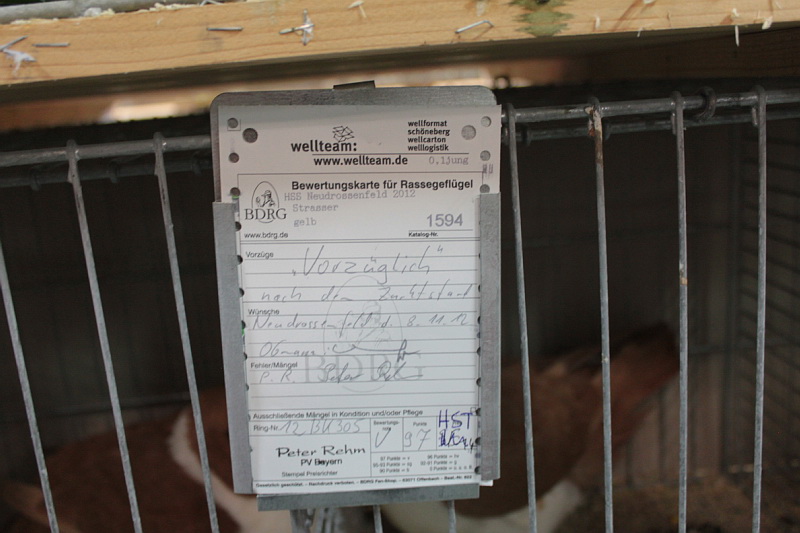 wellteam:
wellformat
schöneberg
wellcarton
welllogistik
www.wellteam.de
0,1jung
Bewertungskarte für Rassegeflügel
HSS Neudrossenfeld 2012
BDRG
Strasser
gelb
1594
www.bdrg.de
Katalog-Nr.
Vorzüge
"Vorzüglich"
nach dem Zuchtstand
Wünsche
Neudrossenfeld d. 8.11.12
Obmann
Fehler/Mängel
P.R. Peter
BDRG
Ausschließende Mängel in Kondition und/oder Pflege
Ring-Nr. 12 BU 305
Bewertungs-
note
V
Punkte
97
HST
Peter Rehm
PV Bayern
Stempel Preisrichter
97 Punkte = v
96 Punkte = hv
Gesetzlich geschützt. - Nachdruck verboten. - BDRG Fan-Shop